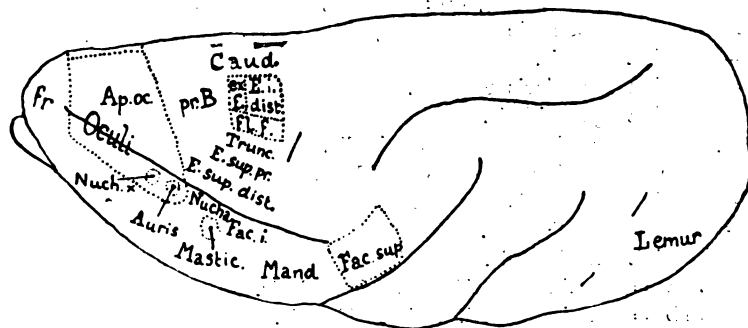 C̄aud.
fr
Ap.oc
pr.B
ex E.i.
f. dist.
fl. f.
Oculi
Trunc.
E. sup. pr.
E. sup. dist.
Nuch. x
Nucha
Auris
Fac. i.
Mastic.
Mand
Fac. sup
Lemur